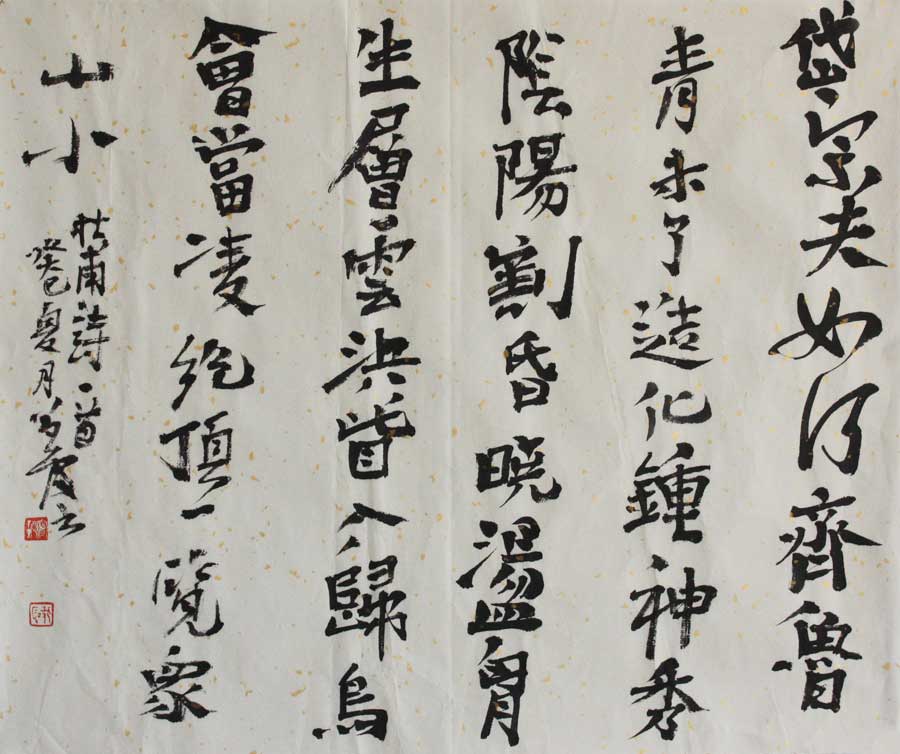 岱宗夫如何齊魯
青未了造化鍾神秀
陰陽割昏暁盪胷
生層雲決眥入歸鳥
會當凌絶頂一覽衆
山小
杜甫詩一首
癸巳夏月